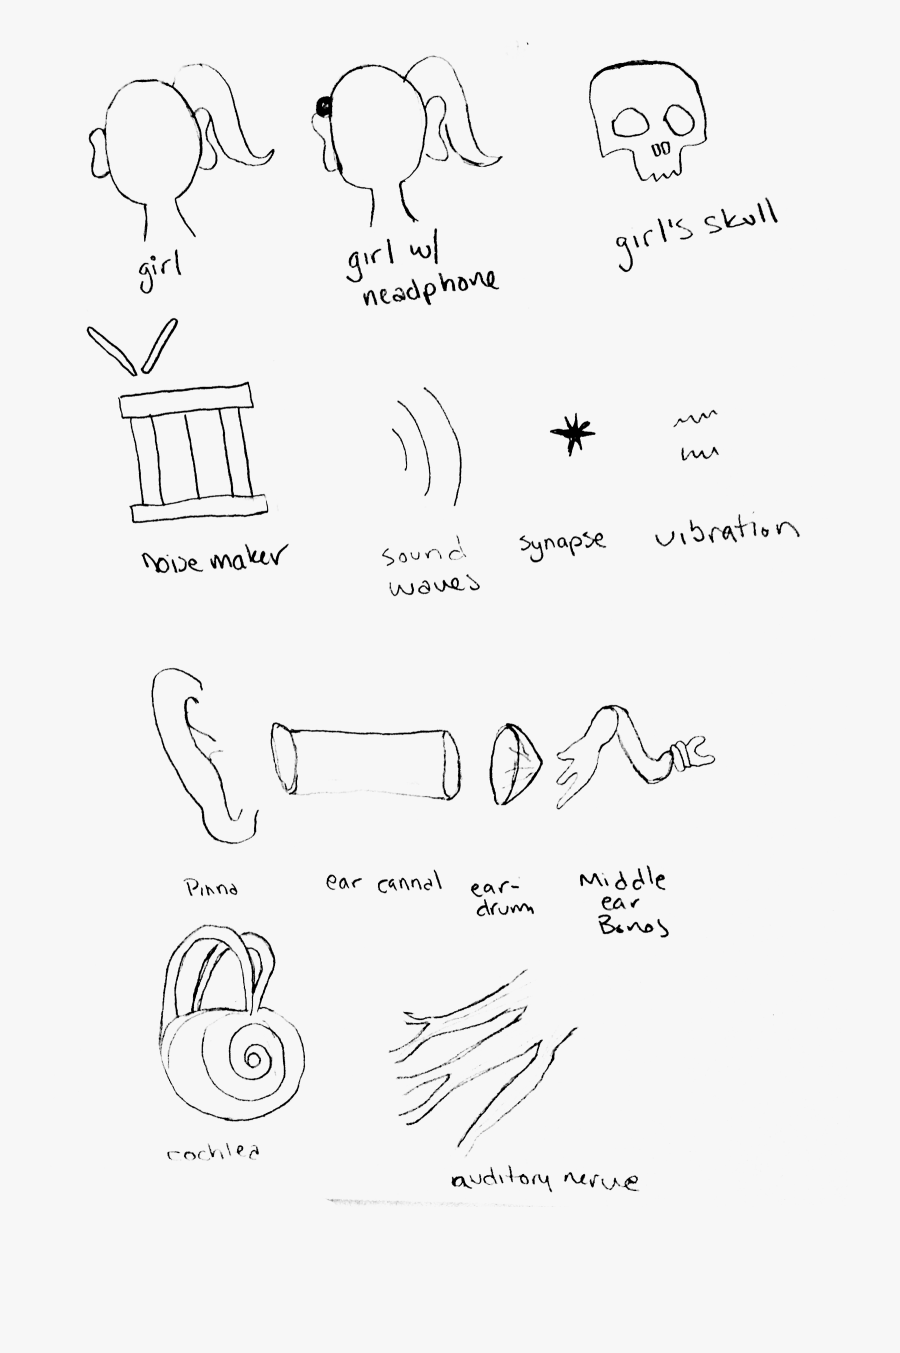 girl
girl w/
neadphone
girl's skull
noise maker
sound
waves
synapse
vibration
Pinna
ear cannal
ear-
drum
Middle
ear
Bones
cochlea
auditory nerve